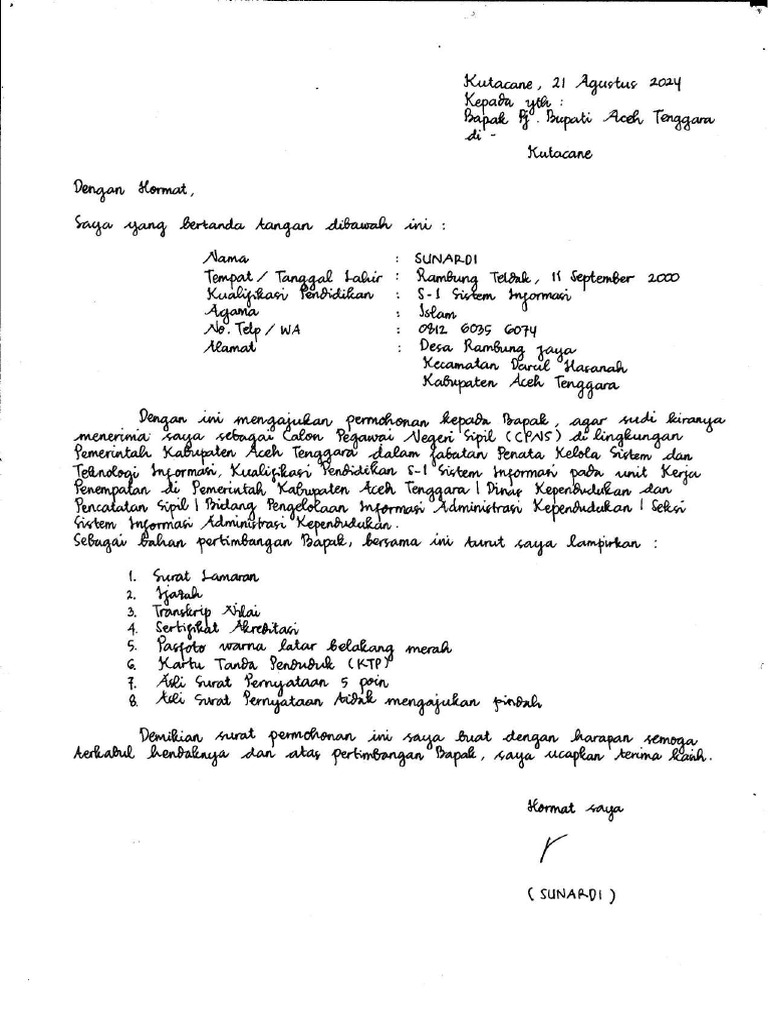 Kutacane, 21 Agustus 2024
Kepada yth :
Bapak Pj. Bupati Aceh Tenggara
di -
Kutacane
Dengan Hormat,
Saya yang bertanda tangan dibawah ini :
Nama : SUNARDI
Tempat / Tanggal Lahir : Rambung Teldak, 11 September 2000
Kualifikasi Pendidikan : S-1 Sistem Informasi
Agama : Islam
No. Telp / WA : 0812 6035 6074
Alamat : Desa Rambung Jaya
Kecamatan Darul Hasanah
Kabupaten Aceh Tenggara
Dengan ini mengajukan permohonan kepada Bapak, agar sudi kiranya
menerima saya sebagai Calon Pegawai Negeri Sipil (CPNS) di lingkungan
Pemerintah Kabupaten Aceh Tenggara dalam Jabatan Penata Kelola Sistem dan
Teknologi Informasi, Kualifikasi Pendidikan S-1 Sistem Informasi pada unit Kerja
Penempatan di Pemerintah Kabupaten Aceh Tenggara | Dinas Kependudukan dan
Pencatatan Sipil | Bidang Pengelolaan Informasi Administrasi Kependudukan | Seksi
Sistem Informasi Administrasi Kependudukan.
Sebagai bahan pertimbangan Bapak, bersama ini turut saya lampirkan :
1. Surat Lamaran
2. Ijazah
3. Transkrip Nilai
4. Sertifikat Akreditasi
5. Pasfoto warna latar belakang merah
6. Kartu Tanda Penduduk (KTP)
7. Asli Surat Pernyataan 5 poin
8. Asli Surat Pernyataan tidak mengajukan pindah
Demikian surat permohonan ini saya buat dengan harapan semoga
terkabul hendaknya dan atas pertimbangan Bapak, saya ucapkan terima kasih.
Hormat saya
(SUNARDI)